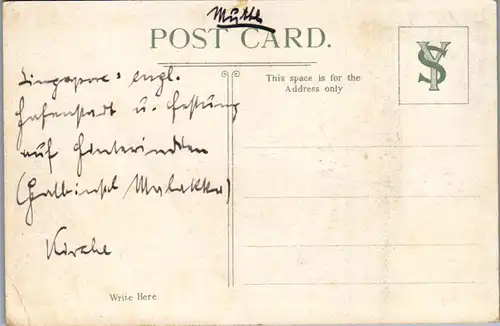 Mutter
POST CARD.
SY
This space is for the
Address only
Singapore: engl.
Hafenstadt u. Festung
auf Hinterindien
(Halbinsel Malakka)
Kirche
Write Here